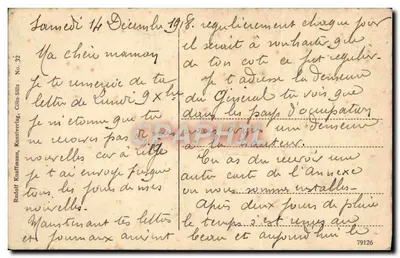 Samedi 14 Décembre 1918.
Ma chère maman
Je te remercie de ta
lettre de Lundi 9 Xbre
je m'étonne que tu
ne reçoives pas de
nouvelles car à
je t'ai envoyé presque
tous les jours de mes
nouvelles.
Maintenant tes lettres
et journaux arrivent
régulièrement chaque jour
il serait à souhaiter que
de ton côté ce fut régulier.
Je t'adresse la demeure
du Général tu vois que
dans les pays d'occupation
nous avons une demeure
à la hauteur.
Tu as dû recevoir une
autre carte de l'annexe
où nous sommes installés.
Après deux jours de pluie
le temps s'est remis au
beau et aujourd'hui le
Rudolf Kauffmann, Kunstverlag, Cöln-Sülz No. 32
79126